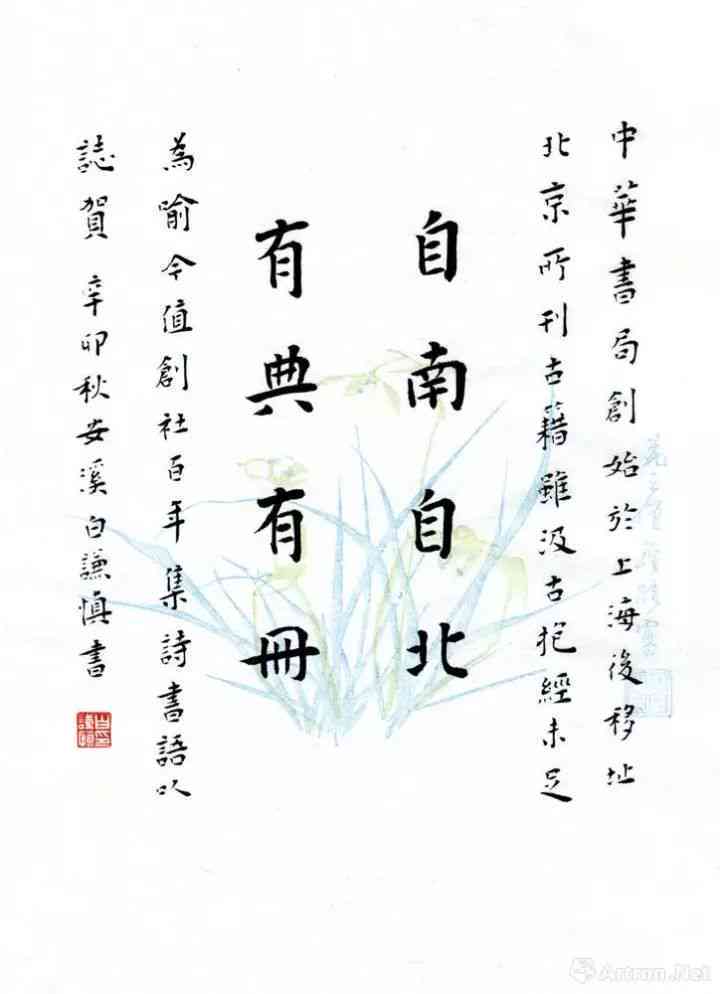 中華書局創始於上海後移址
北京所刊古籍雖汲古抱經未足
自南自北
有典有冊
為喻今值創社百年集詩書語以
誌賀 辛卯秋安溪白謙慎書
Artron.Net